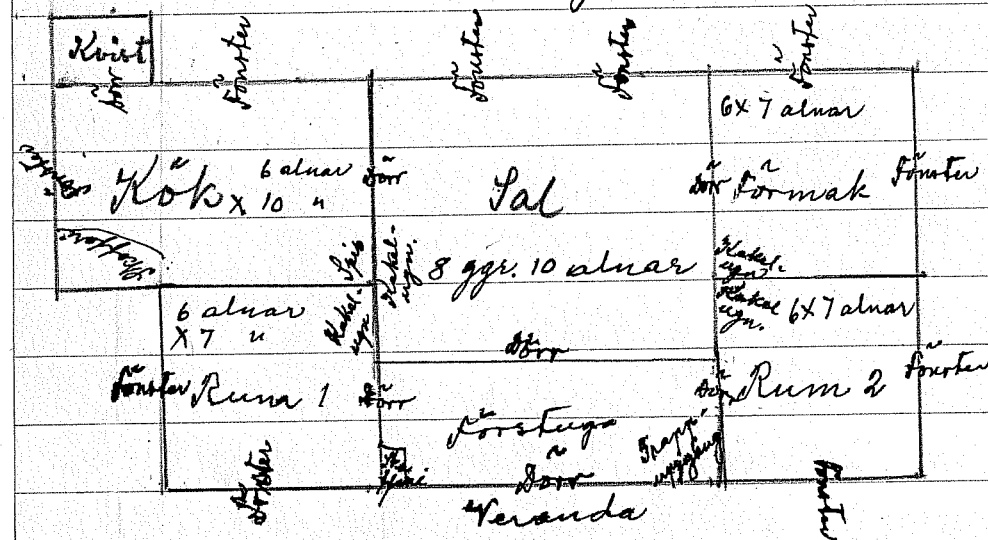 Kvist
Dörr
Fönster
Fönster
Fönster
Fönster
6 X 7 alnar
Fönster
Kök
6 alnar
X 10 "
Dörr
Sal
Dörr
Förmak
Fönster
Skafferi
Spis
Kakel-
ugn.
8 ggr. 10 alnar
Kakel-
ugn.
6 alnar
X 7 "
Kakel-
ugn
Kakel
ugn.
6 X 7 alnar
Dörr
Fönster
Rum 1
Dörr
Dörr
Rum 2
Fönster
Förstuga
Trapp-
uppgång
Fönster
Dörr
Fönster
Veranda